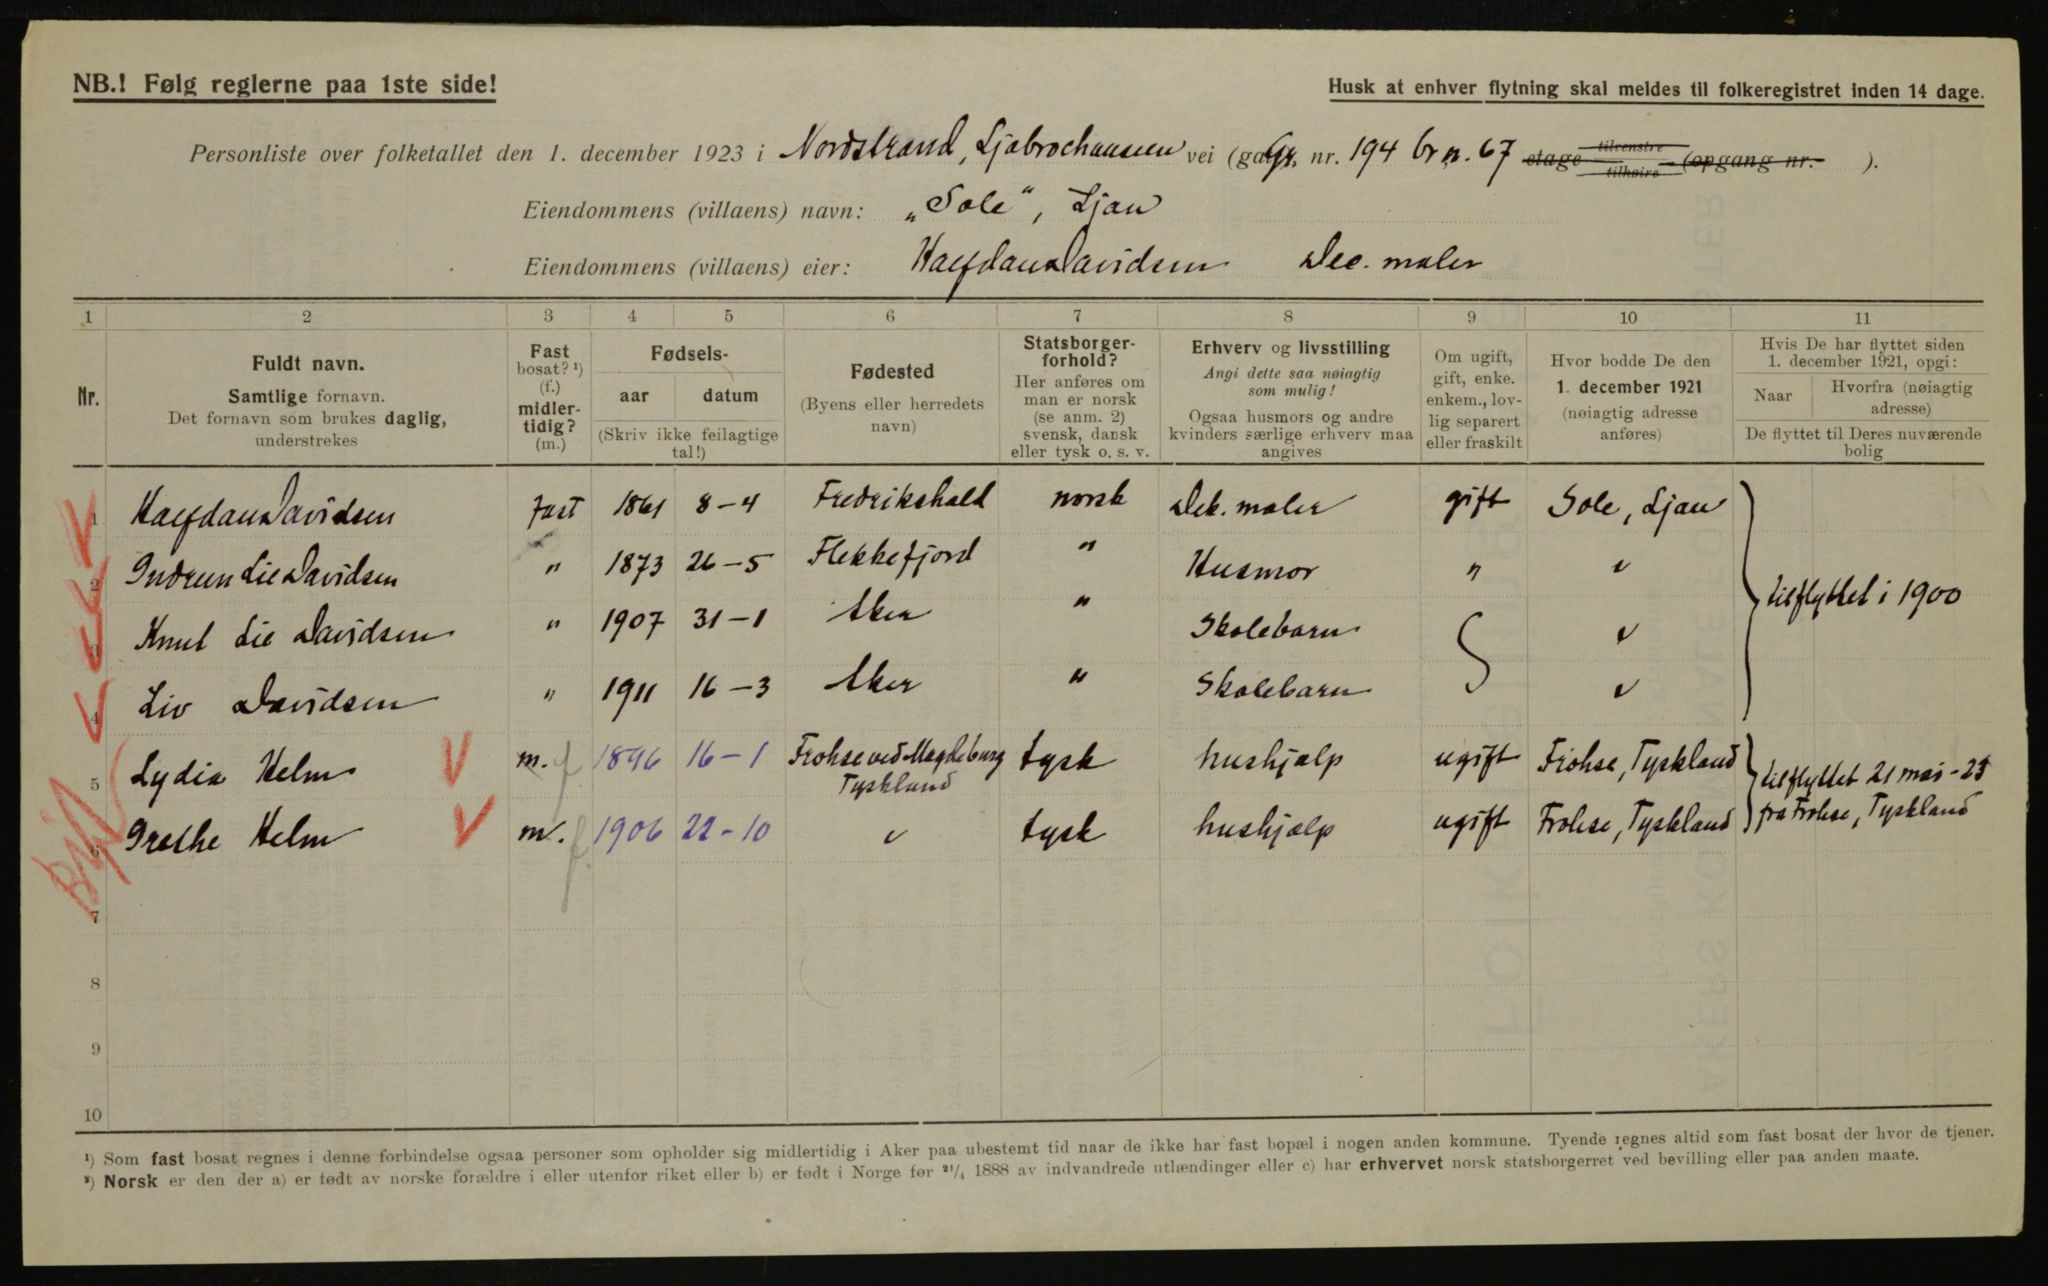 NB.! Følg reglerne paa 1ste side!
Husk at enhver flytning skal meldes til folkeregistret inden 14 dage.
Personliste over folketallet den 1. december 1923 i Nordstrand, Ljabrochausseen vei (ga Gr. nr. 194 br n. 67 etage tilvenstre tilhøire (opgang nr. ).
Eiendommens (villaens) navn: „Sole“, Ljan
Eiendommens (villaens) eier: Halfdan Davidsen Dec. maler
1 2 3 4 5 6 7 8 9 10 11
Nr.
Fuldt navn.
Samtlige fornavn.
Det fornavn som brukes daglig,
understrekes
Fast
bosat? ¹)
(f.)
midler-
tidig?
(m.)
Fødsels-
aar datum
(Skriv ikke feilagtige
tal!)
Fødested
(Byens eller herredets
navn)
Statsborger-
forhold?
Her anføres om
man er norsk
(se anm. 2)
svensk, dansk
eller tysk o. s. v.
Erhverv og livsstilling
Angi dette saa nøiagtig
som mulig!
Ogsaa husmors og andre
kvinders særlige erhverv maa
angives
Om ugift,
gift, enke.
enkem., lov-
lig separert
eller fraskilt
Hvor bodde De den
1. december 1921
(nøiagtig adresse
anføres)
Hvis De har flyttet siden
1. december 1921, opgi:
Naar
Hvorfra (nøiagtig
adresse)
De flyttet til Deres nuværende
bolig
1 Halfdan Davidsen Fast 1861 8-4 Fredrikshald norsk Dek. maler gift Sole, Ljan
2 Gudrun Lie Davidsen " 1873 26-5 Flekkefjord " Husmor " "
tilflyttet i 1900
3 Knut Lie Davidsen " 1907 31-1 Aker " Skolebarn "
4 Liv Davidsen " 1911 16-3 Aker " Skolebarn "
5 Lydia Helm m. f 1896 16-1 Frohse ved Magdeburg Tyskland tysk hushjælp ugift Frohse, Tyskland
tilflyttet 21 mai-23
fra Frohse, Tyskland
6 Grethe Helm m. f. 1906 22-10 " tysk hushjælp ugift Frohse, Tyskland
7
8
9
10
¹) Som fast bosat regnes i denne forbindelse ogsaa personer som opholder sig midlertidig i Aker paa ubestemt tid naar de ikke har fast bopæl i nogen anden kommune. Tyende regnes altid som fast bosat der hvor de tjener.
²) Norsk er den der a) er født av norske forældre i eller utenfor riket eller b) er født i Norge før ²¹/₄ 1888 av indvandrede utlændinger eller c) har erhvervet norsk statsborgerret ved bevilling eller paa anden maate.